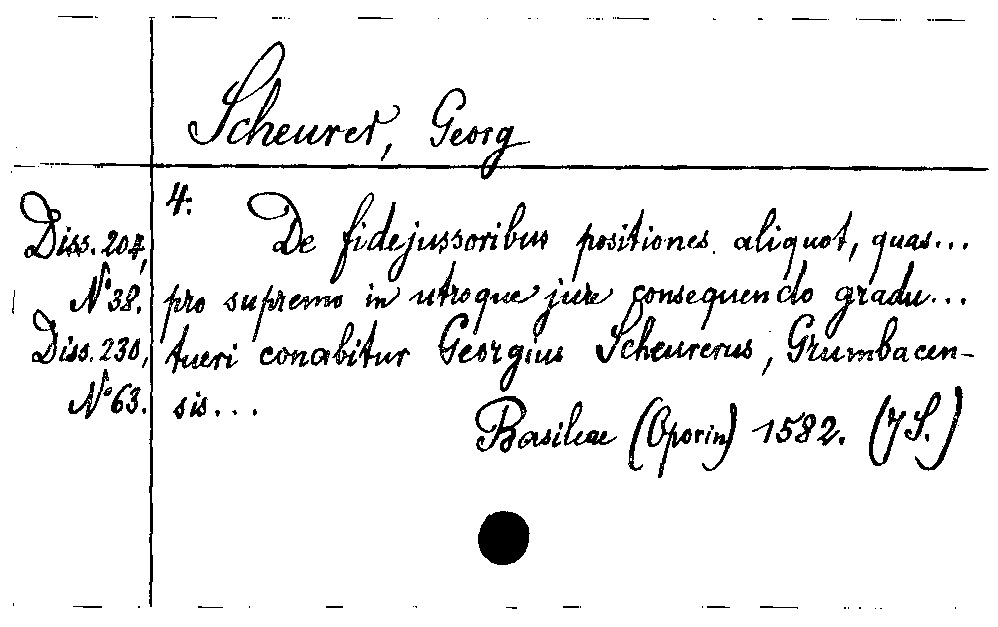 Scheurer, Georg
4:
Diss. 207,
N° 38.
Diss. 230,
N° 63.
De fidejussoribus positiones aliquot, quas...
pro supremo in utroque jure consequendo gradu...
tueri conabitur Georgius Scheurerus, Grumbacen-
sis...
Basileae (Oporin) 1582. (7 S.)